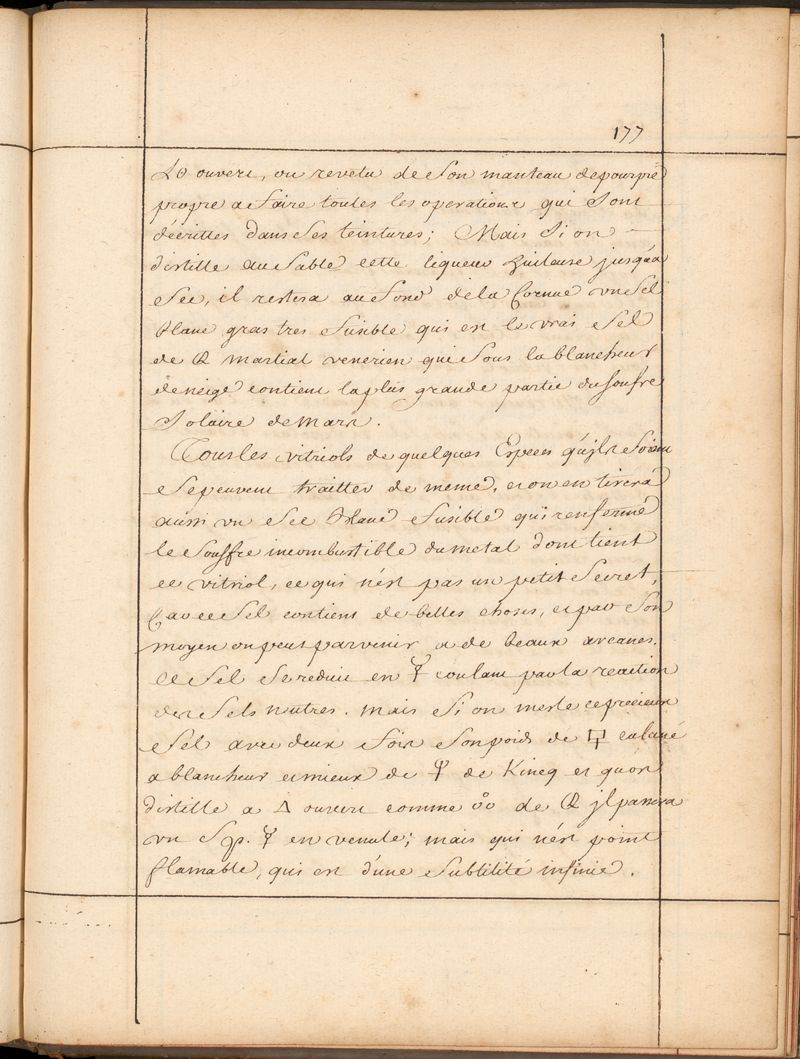 177
ouvert, ou revetu de son manteau de pourpre
propre a faire toutes les operations qui sont
décrittes dans ses teintures; Mais si on
distille au sable cette liqueur huileuse jusqu'a
sec, il restera au fond de la Cornue un sel
blanc gras tres fusible qui est le vrai sel
de martial venerien qui sous la blancheur
de neige contient la plus grande partie du soufre
Solaire de mars.
Tous les vitriols de quelques Especes qu'ils soient
se peuvent traitter de meme, et on en tirera
aussi un sel blanc fusible qui renferme
le souffre incombustible du metal dont tient
ce vitriol, ce qui n'est pas un petit secret,
Car ce sel contient de belles choses, et par son
moyen on peut parvenir a de beaux arcanes.
Ce sel se reduit en ☿ coulant par la reaction
des sels nûtres. mais si on mesle ce precieux
sel avec deux fois son poids de calciné
a blancheur et mieux de ☿ de Kineq et qu'on
distille a △ ouvert comme de il passera
un Sp. ☿ en venule; mais qui n'est point
flamable, qui est d'une subtilité infinie.